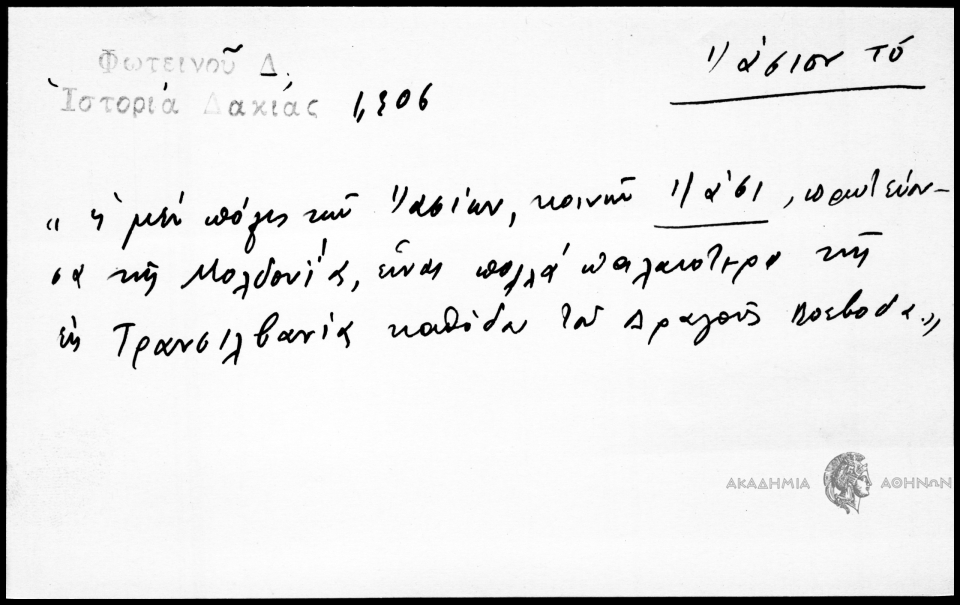 Φωτεινοῦ Δ.
Ἱστορία Δακίας 1,506
Ἰάσιον τό
"ἡ μὲν πόλις τῶν Ἰασίων, κοινῶς Ἰάσι, πρωτεύου-
σα τῆς Μολδουΐας, εἶναι πολλά παλαιοτέρα τῆς
ἐκ Τρανσιλβανίας καθόδου τοῦ Δραγοῦς Βοεβόδα."
ΑΚΑΔΗΜΙΑ ΑΘΗΝΩΝ